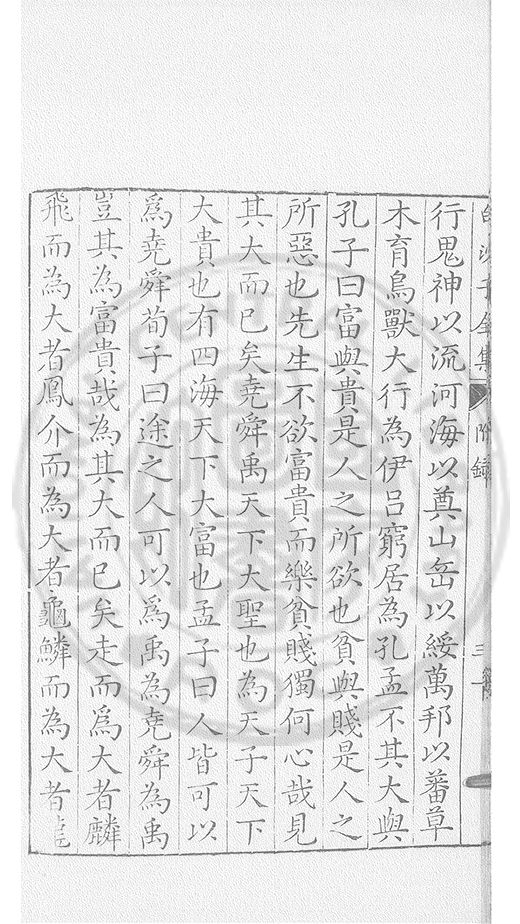 行鬼神以流河海以奠山岳以綏萬邦以蕃草
木育鳥獸大行為伊呂窮居為孔孟不其大與
孔子曰富與貴是人之所欲也貧與賤是人之
所惡也先生不欲富貴而樂貧賤獨何心哉見
其大而已矣堯舜禹天下大聖也為天子天下
大貴也有四海天下大富也孟子曰人皆可以
爲堯舜荀子曰途之人可以爲禹為堯舜為禹
豈其為富貴哉為其大而已矣走而爲大者麟
飛而為大者鳳介而為大者龜鱗而為大者龍